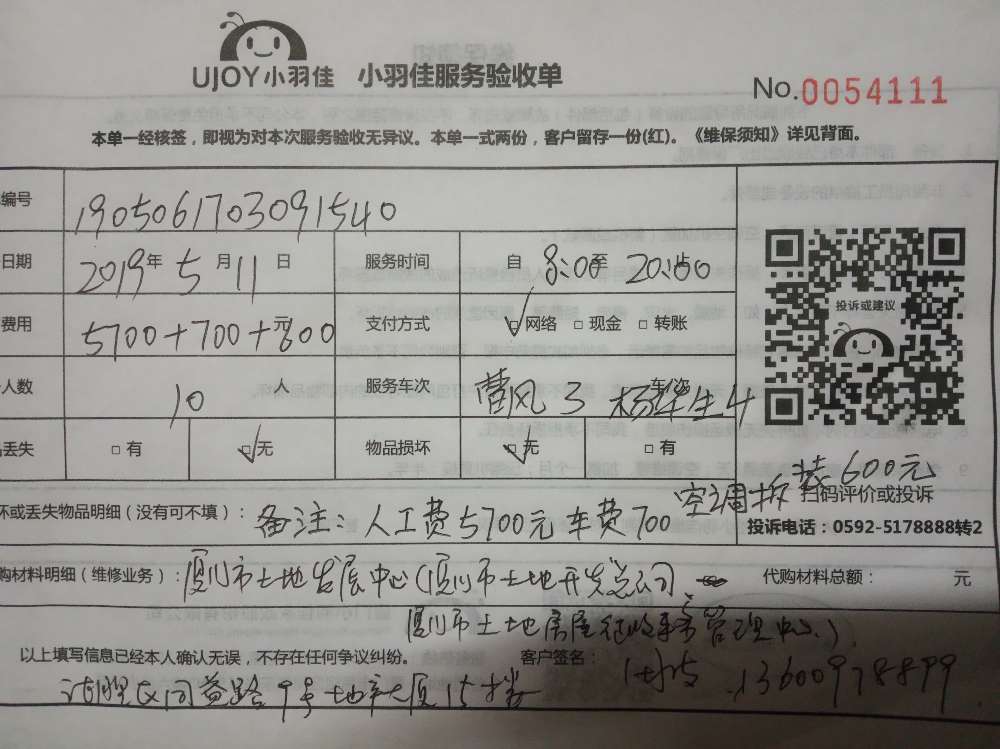 UJOY小羽佳 小羽佳服务验收单
No.0054111
本单一经核签，即视为对本次服务验收无异议。本单一式两份，客户留存一份(红)。《维保须知》详见背面。
编号 1905061703091540
日期 2019年5月11日 服务时间 自 8:00至 20:00
费用 5700+700+600元 支付方式 网络 现金 转账
投诉或建议
人数 10人 服务车次 曹风3 杨华生4 车/次
丢失 有 无 物品损坏 无 有
扫码评价或投诉
坏或丢失物品明细（没有可不填）： 备注：人工费5700元 车费700 空调拆装600元
投诉电话：0592-5178888转2
购材料明细（维修业务）： 厦门市土地发展中心（厦门市土地开发总公司、 代购材料总额： 元
厦门市土地房屋征收事务管理中心）
以上填写信息已经本人确认无误，不存在任何争议纠纷。 客户签名： 13600978899
湖里区同益路9号地产大厦15楼